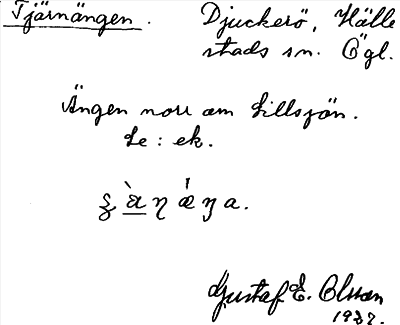 Tjärnängen. Djuckerö, Hälle
stads sn. Ögl.
Ängen norr om Lillsjön.
Le: ek.
Gustaf E. Olsson